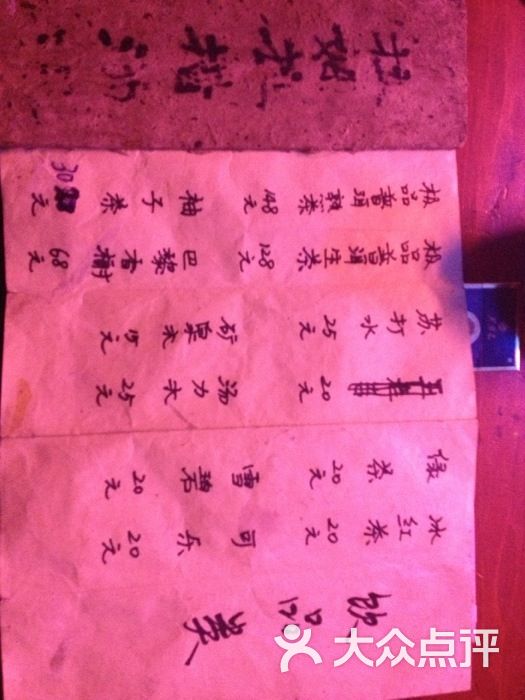 饮品类
冰红茶 20元 可乐 20元
绿茶 20元 雪碧 20元
20元 汤力水 25元
苏打水 25元 矿泉水 15元
极品普洱生茶 128元 巴黎香榭 68元
极品普洱熟茶 148元 柚子茶 30元
大众点评